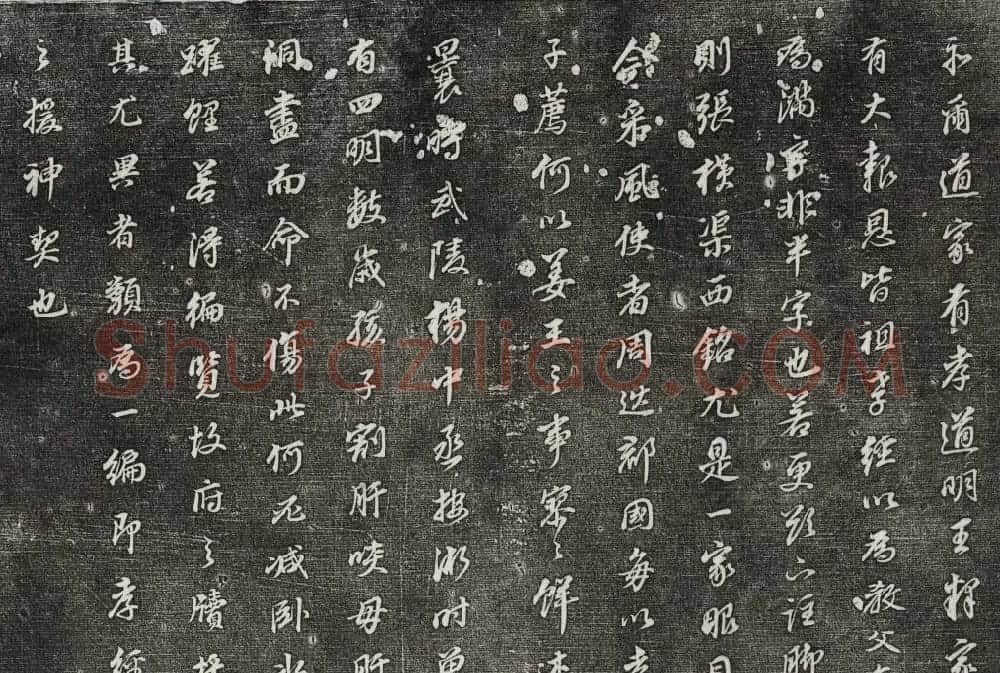 示爾道家有孝道明王釋家
有大報恩皆祖孝經以為教父
為滿字非半字也若更欲下註脚
則張橫渠西銘尤是一家眼目
采風使者周迭郡國每以孝
子薦何以姜王之事寥之鮮
曩時武陵楊中丞按浙時曾
有四明數歲孩子割肝啖母肝
洞盡而命不傷此何 减卧冰
躍鯉若得編覽故府之牘
其尤異者類為一編即孝經
之援神契也
Shufaziliao.COM